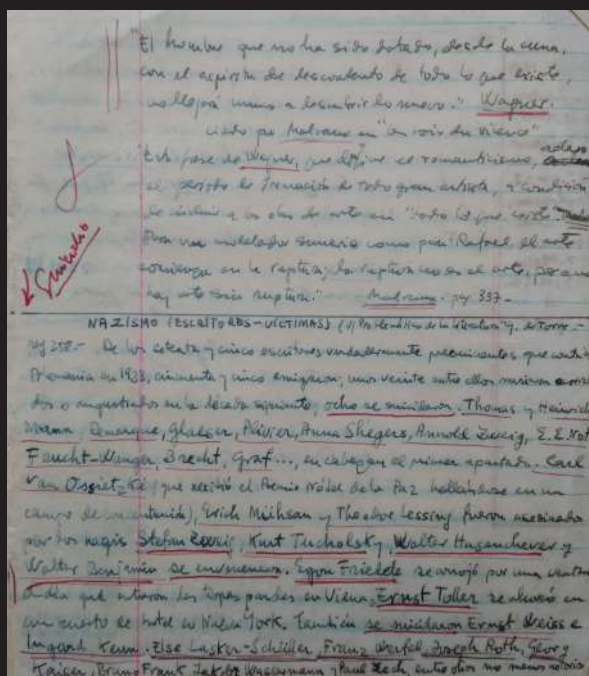 "El hombre que no ha sido dotado, desde la cuna,
con el espíritu de descontento de todo lo que existe,
no llegará nunca a descubrir lo nuevo." Wagner.
citado por Malraux en
Esta frase de Wagner, que define el romanticismo,
el período de formación de todo gran artista, a condición
de incluir a las obras de arte en "todo lo que existe".
Para un modelador sumerio como para Rafael, el arte
comienza en la ruptura; la ruptura no es el arte, pero no
hay arte sin ruptura." Malraux. pag 337-
Suicidio
NAZISMO (ESCRITORES-VICTIMAS) de la Literatura" g. de Torre.-
pag 258.- De los setenta y cinco escritores verdaderamente preeminentes que contaba
Alemania en 1933, cincuenta y cinco emigraron; unos veinte entre ellos murieron
dos o angustiados en la década siguiente, ocho se suicidaron. Thomas y Heinrich
Mann, Remarque, Glaeser, Plivier, Anna Shegers, Arnold Zweig, E.E. Not
Feucht-Wanger, Brecht, Graf..., encabezan el primer apartado. Carl
Von Ossietzki (que recibió el Premio Nóbel de la Paz hallándose en un
campo de concentración), Erich Mühsan y Theodor Lessing fueron asesinados
por los nazis. Stefan Zweig, Kurt Tucholsky, Walter Hasenclever y
Walter Benjamin se envenenan. Egon Friedele se arrojó por una ventana
el día que entraron las tropas pardas en Viena. Ernst Toller se ahorcó en
un cuarto de hotel en Nueva York. También se suicidaron Ernst Weiss e
Ingard Keun. Else Lasker-Schüller, Franz Werfel, Joseph Roth, Georg
Kaiser, Bruno Frank, Jakob Wassermann y Paul Zech, entre otros no menos notorios